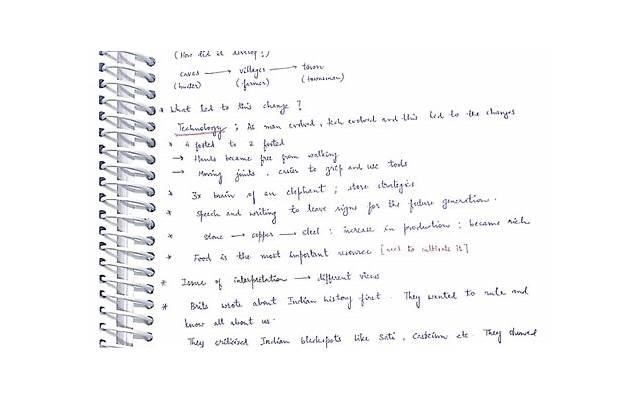 (How did it develop?)
caves → villages → town
(hunter) (farmer) (townsman)
* What led to this change?
Technology ; As man evolved, tech evolved and this led to the changes
* 4 footed to 2 footed
→ Hands became free from walking
→ Moving joints, easier to grip and use tools
* 3x brain of an elephant ; store strategies
* Speech and writing to leave signs for the future generation.
* stone → copper → steel : increase in production : became rich
* Food is the most important resource [need to cultivate it]
* Issue of interpretation → different views
* Brits wrote about Indian history first. They wanted to rule and
know all about us.
They criticised Indian blackspots like Sati, Casteism etc. They showed